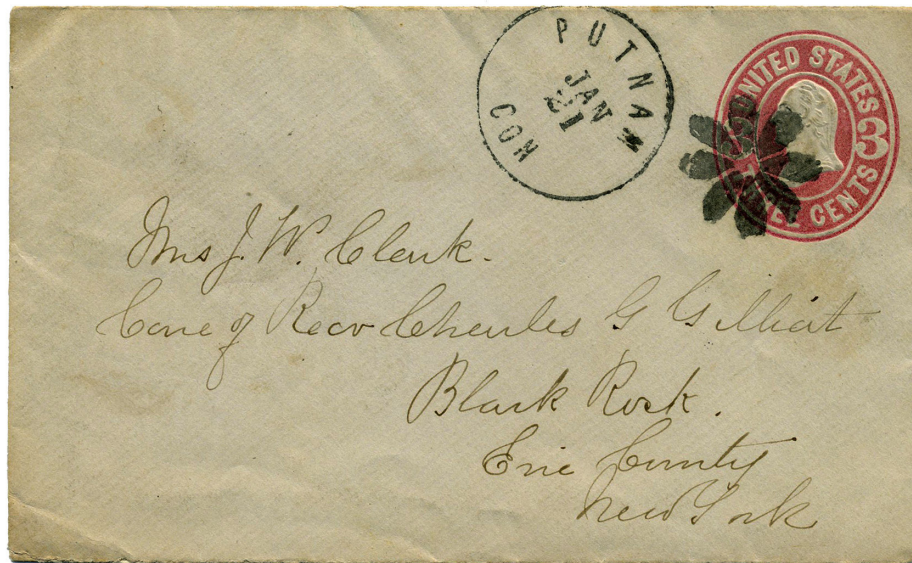 PUTNAM
JAN
21
CON
UNITED STATES
3 3
THREE CENTS
Mrs J. W. Clark.
Care of Revr Charles G
Black Rock.
Erie County
New York